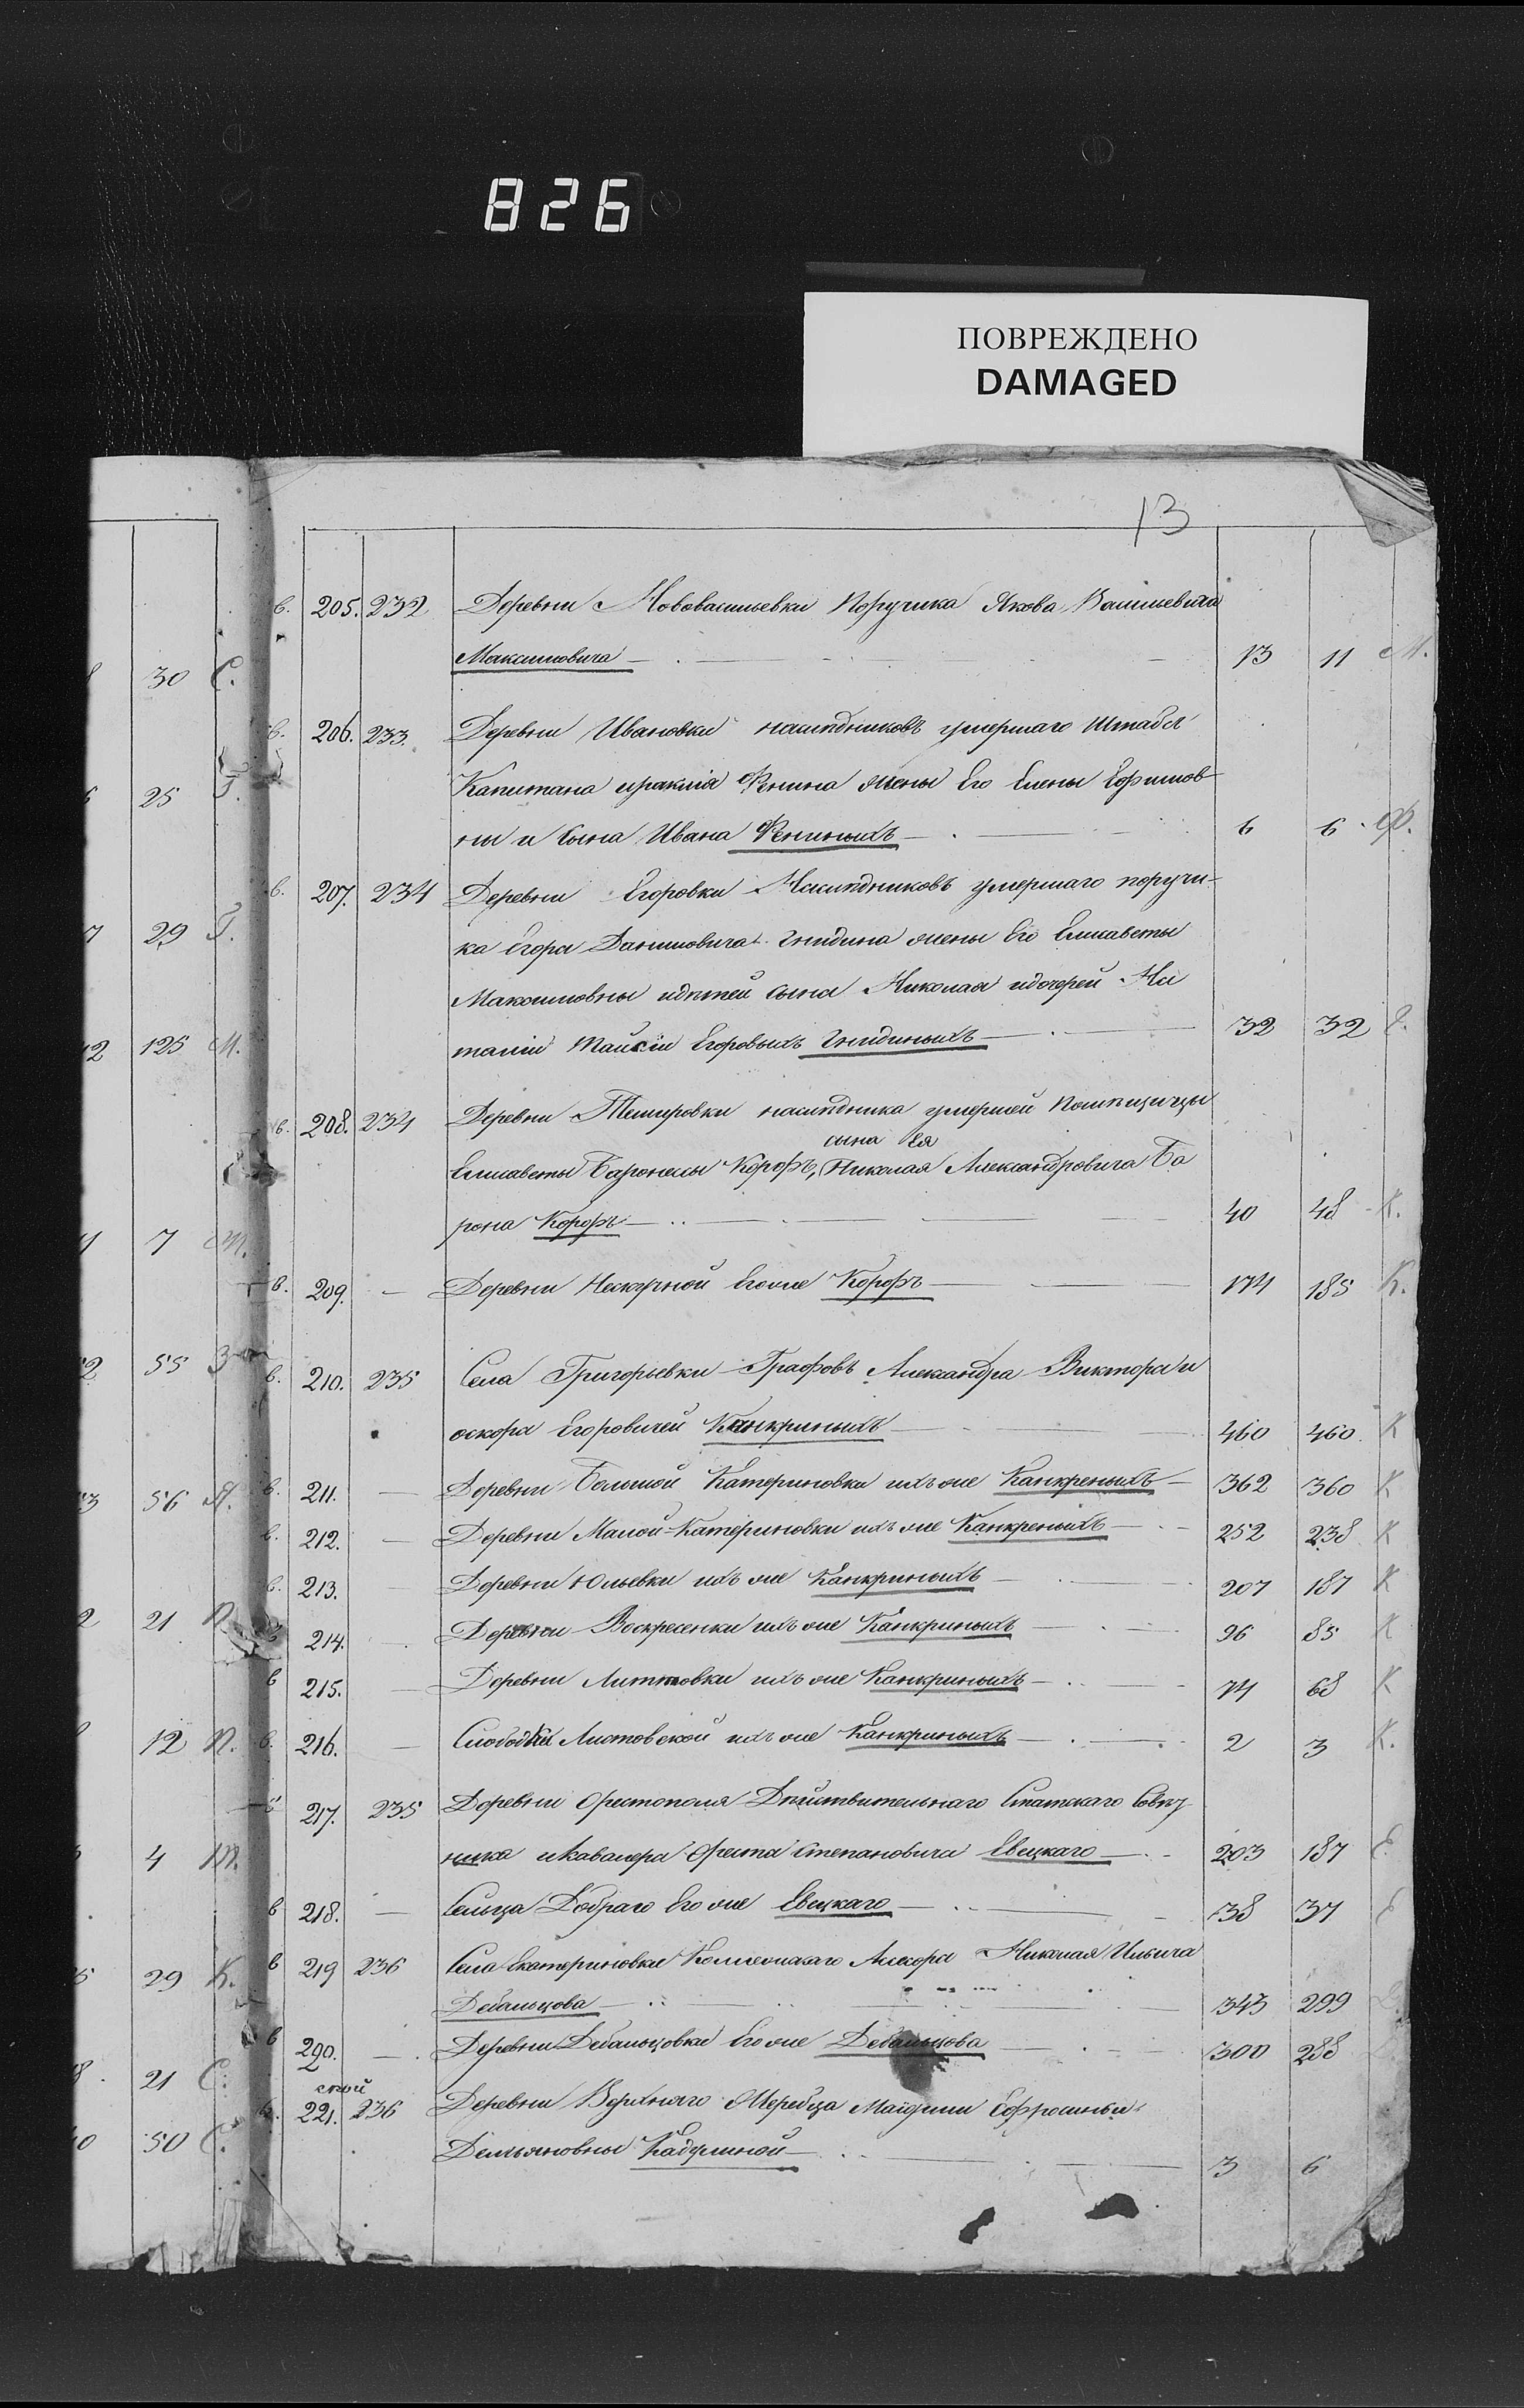 826
ПОВРЕЖДЕНО
DAMAGED
13
в. 205. 232 Деревни Нововасильевки Поручика Якова Васильевича
Максимовича 13 11 М.
в. 206. 233. Деревни Ивановки наслѣдниковъ умершаго Штабсъ
Капитана Ираклія Фенина жены Его Елены Ефимов-
ны и Сына Ивана Фениныхъ 6 6 Ф.
в. 207. 234 Деревни Егоровки Наслѣдниковъ умершаго поручи-
ка Егора Даниловича Гнѣдина жены Его Елисаветы
Максимовны идѣтей Сына Николая идочерей На
таліи Таисіи Егоровыхъ Гнѣдиныхъ 32 32 Г.
в. 208. 234 Деревни Темировки наслѣдника умершей Помѣщицы
сына Ея
Елисаветы Баронессы Корфъ, Николая Александровича Ба
рона Корфъ 40 48 К.
в. 209. — Деревни Нескучной Егоже Корфъ 174 185 К.
в. 210. 235 Села Григорьевки Графовъ Александра Виктора и
оскора Егоровичей Канкриныхъ 460 460 К
в. 211. — Деревни Большой Катериновки ихъ же Канкреныхъ 362 360 К
в. 212. — Деревни Малой-Катериновки ихъ же Канкреныхъ 252 238 К
в. 213. Деревни Юльевки ихъ же Канкриныхъ 207 187 К
214. Деревни Воскресенки ихъ же Канкриныхъ 96 85 К
в 215. — Деревни ихъ же Канкриныхъ 74 68 К
в. 216. — Слободки Листовской ихъ же Канкриныхъ 2 3 К.
в 217. 235 Деревни Орестополя Дѣйствительнаго Статскаго Совѣт
ника иКавалера Ореста Степановича Евецкаго 203 187 Е
в 218. — Сельца Добраго Его же Евецкаго 38 37 Е
в 219 236 Села Екатериновки Коллежскаго Асесора Николая Ильича
Дебальцова 343 299 Д.
в 290. — Деревни Дебальцовки Его же Дебальцова 300 288
ской
в. 221. 236 Деревни Верхняго Жеребца Маіорши Ефросиньи
Демьяновны Кадулиной 3 6
30 С.
25
29 Г.
125 М.
7 М.
55 З
56 Л.
21 П.
12 П.
4 М.
29 К.
21 С.
50 С.